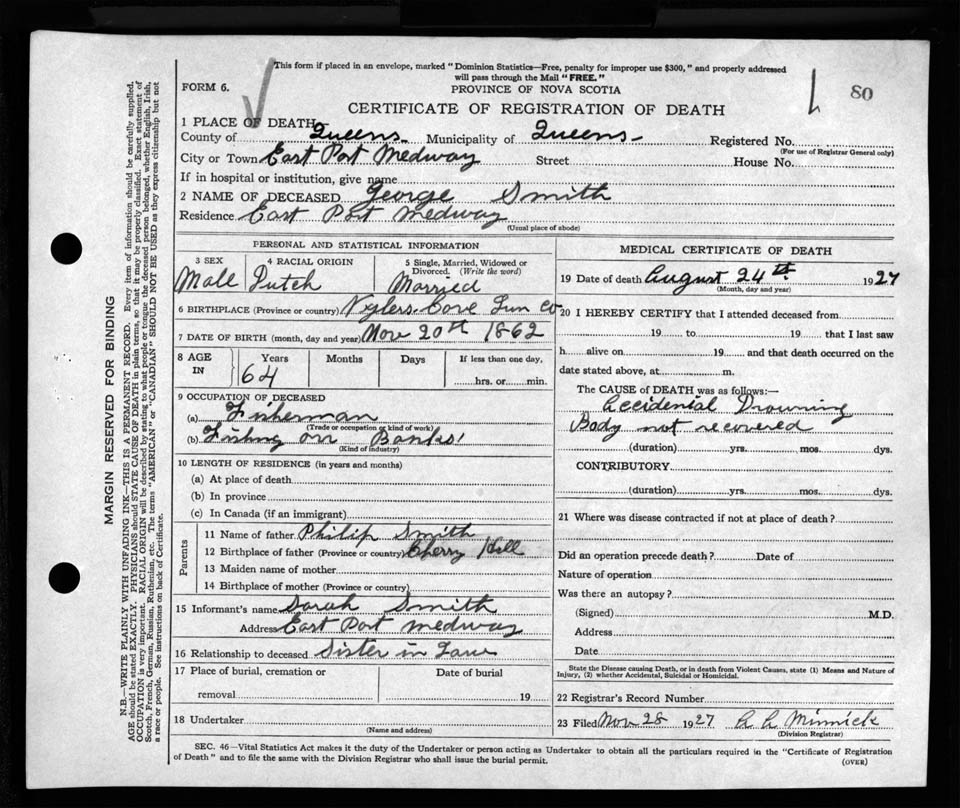 This form if placed in an envelope, marked "Dominion Statistics—Free, penalty for improper use $300," and properly addressed
will pass through the Mail "FREE."
FORM 6.
PROVINCE OF NOVA SCOTIA
80
CERTIFICATE OF REGISTRATION OF DEATH
1 PLACE OF DEATH
County of Queens Municipality of Queens Registered No.
(For use of Registrar General only)
City or Town East Port Medway Street House No.
If in hospital or institution, give name
2 NAME OF DECEASED George Smith
Residence East Port Medway
(Usual place of abode)
PERSONAL AND STATISTICAL INFORMATION
3 SEX 4 RACIAL ORIGIN 5 Single, Married, Widowed or
Divorced. (Write the word)
Male Dutch Married
6 BIRTHPLACE (Province or country) Voglers Cove Lun Co
7 DATE OF BIRTH (month, day and year) Nov 20th 1862
8 AGE IN Years Months Days If less than one day,
64 hrs. or min.
9 OCCUPATION OF DECEASED
(a) Fisherman
(Trade or occupation or kind of work)
(b) Fishing on Banks
(Kind of industry)
10 LENGTH OF RESIDENCE (in years and months)
(a) At place of death
(b) In province
(c) In Canada (if an immigrant)
Parents
11 Name of father Philip Smith
12 Birthplace of father (Province or country) Cherry Hill
13 Maiden name of mother
14 Birthplace of mother (Province or country)
15 Informant's name Sarah Smith
Address East Port Medway
16 Relationship to deceased Sister in Law
17 Place of burial, cremation or Date of burial
removal 19
18 Undertaker
(Name and address)
MEDICAL CERTIFICATE OF DEATH
19 Date of death August 24th 1927
(Month, day and year)
20 I HEREBY CERTIFY that I attended deceased from
19 to 19 that I last saw
h alive on 19 and that death occurred on the
date stated above, at m.
The CAUSE of DEATH was as follows:—
Accidental Drowning
Body not recovered
(duration) yrs. mos. dys.
CONTRIBUTORY
(duration) yrs. mos. dys.
21 Where was disease contracted if not at place of death?
Did an operation precede death? Date of
Nature of operation
Was there an autopsy?
(Signed) M.D.
Address
Date
State the Disease causing Death, or in death from Violent Causes, state (1) Means and Nature of
Injury, (2) whether Accidental, Suicidal or Homicidal.
22 Registrar's Record Number
23 Filed Nov 28 1927 Minnick
(Division Registrar)
SEC. 46—Vital Statistics Act makes it the duty of the Undertaker or person acting as Undertaker to obtain all the particulars required in the "Certificate of Registration
of Death" and to file the same with the Division Registrar who shall issue the burial permit.
(OVER)
MARGIN RESERVED FOR BINDING
N.B.—WRITE PLAINLY WITH UNFADING INK—THIS IS A PERMANENT RECORD. Every item of information should be carefully supplied.
AGE should be stated EXACTLY. PHYSICIANS should STATE CAUSE OF DEATH in plain terms, so that it may be properly classified. Exact statement of
OCCUPATION is very important. RACIAL ORIGIN will be described by stating to what people or tongue the deceased person belonged, whether English, Irish,
Scotch, French, German, Russian, Ruthenian, etc. The terms "AMERICAN" or "CANADIAN" SHOULD NOT BE USED as they express citizenship but not
a race or people. See instructions on back of Certificate.